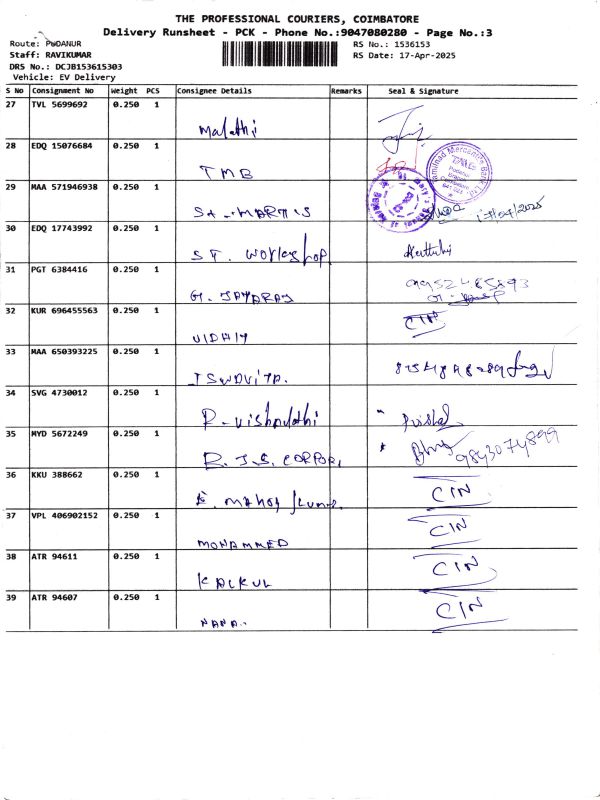 THE PROFESSIONAL COURIERS, COIMBATORE
Delivery Runsheet - PCK - Phone No.:9047080280 - Page No.:3
Route: PODANUR
RS No.: 1536153
Staff: RAVIKUMAR
RS Date: 17-Apr-2025
DRS No.: DCJB153615303
Vehicle: EV Delivery
S No Consignment No Weight PCS Consignee Details Remarks Seal & Signature
27 TVL 5699692 0.250 1
Malathi
28 EDQ 15076684 0.250 1
TMB
29 MAA 571946938 0.250 1
17/04/2025
30 EDQ 17743992 0.250 1
ST. Workshop
31 PGT 6384416 0.250 1
G. JAYARAJ 9952485893
32 KUR 696455563 0.250 1
CIN
33 MAA 650393225 0.250 1
34 SVG 4730012 0.250 1
R-vishalathi
35 MYD 5672249 0.250 1
R.J.S. CORPORI 9843074899
36 KKU 388662 0.250 1
CIN
37 VPL 406902152 0.250 1
MOHAMMED CIN
38 ATR 94611 0.250 1
KALKUL CIN
39 ATR 94607 0.250 1
NANA. CIN